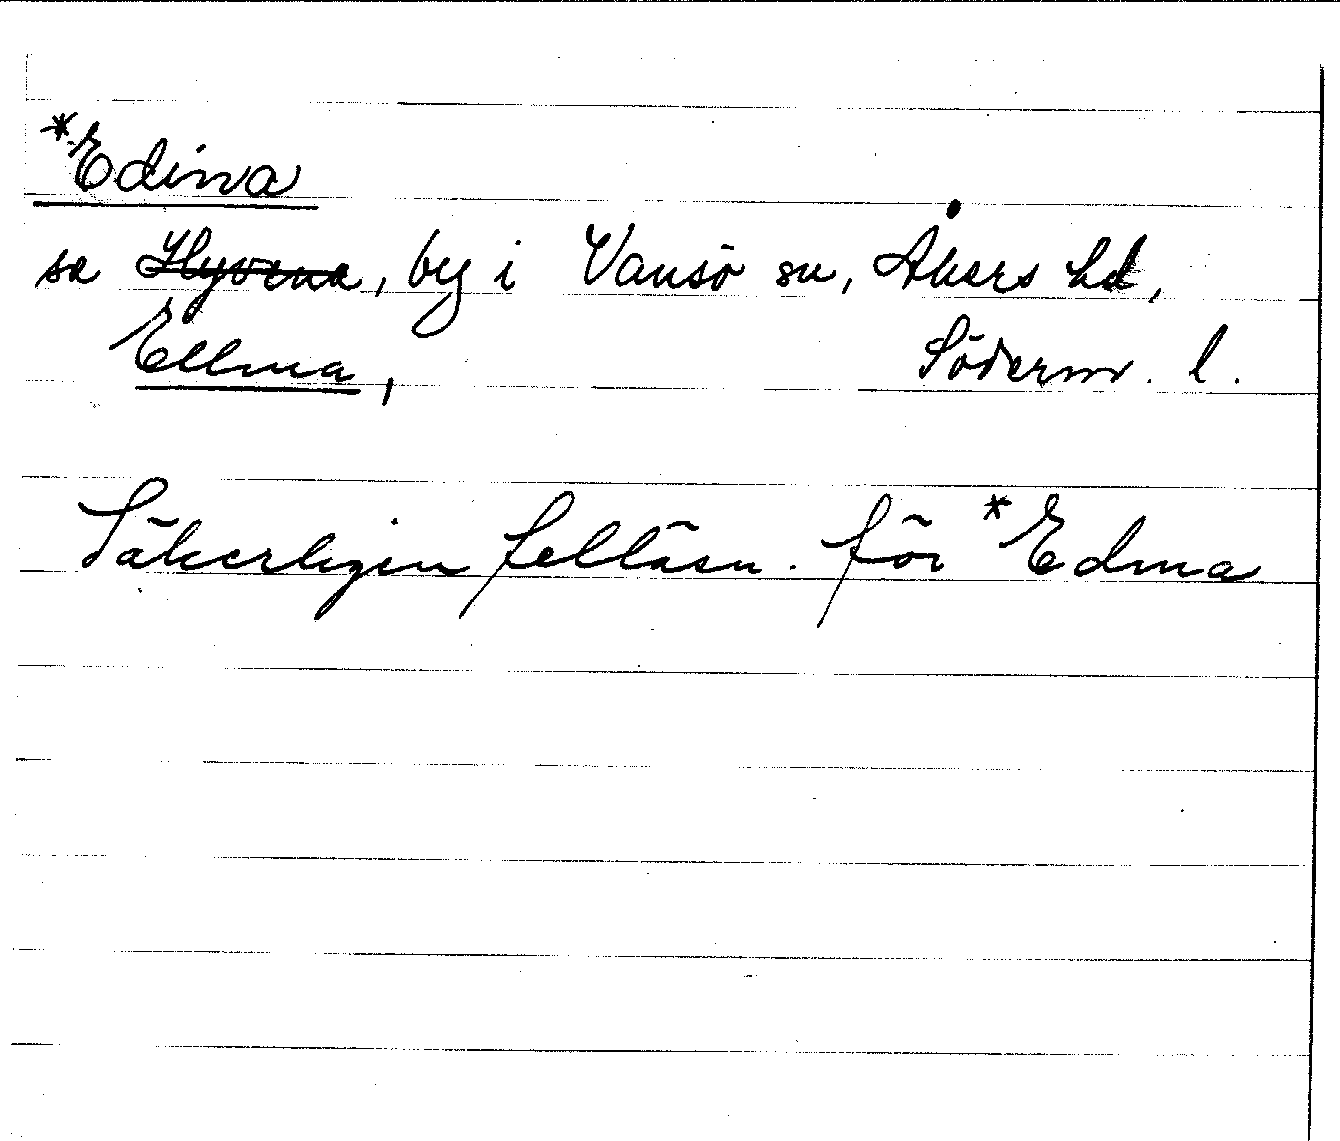 *Edina
se Hyvena, by i Vansö sn, Åkers hd,
Ellma, Söderm. l.
Säkerligen felläsn. för *Edma